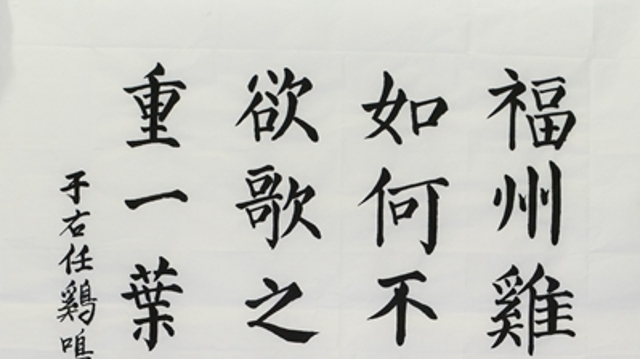 福州雞
如何不
欲歌之
重一葉
于右任鷄鳴